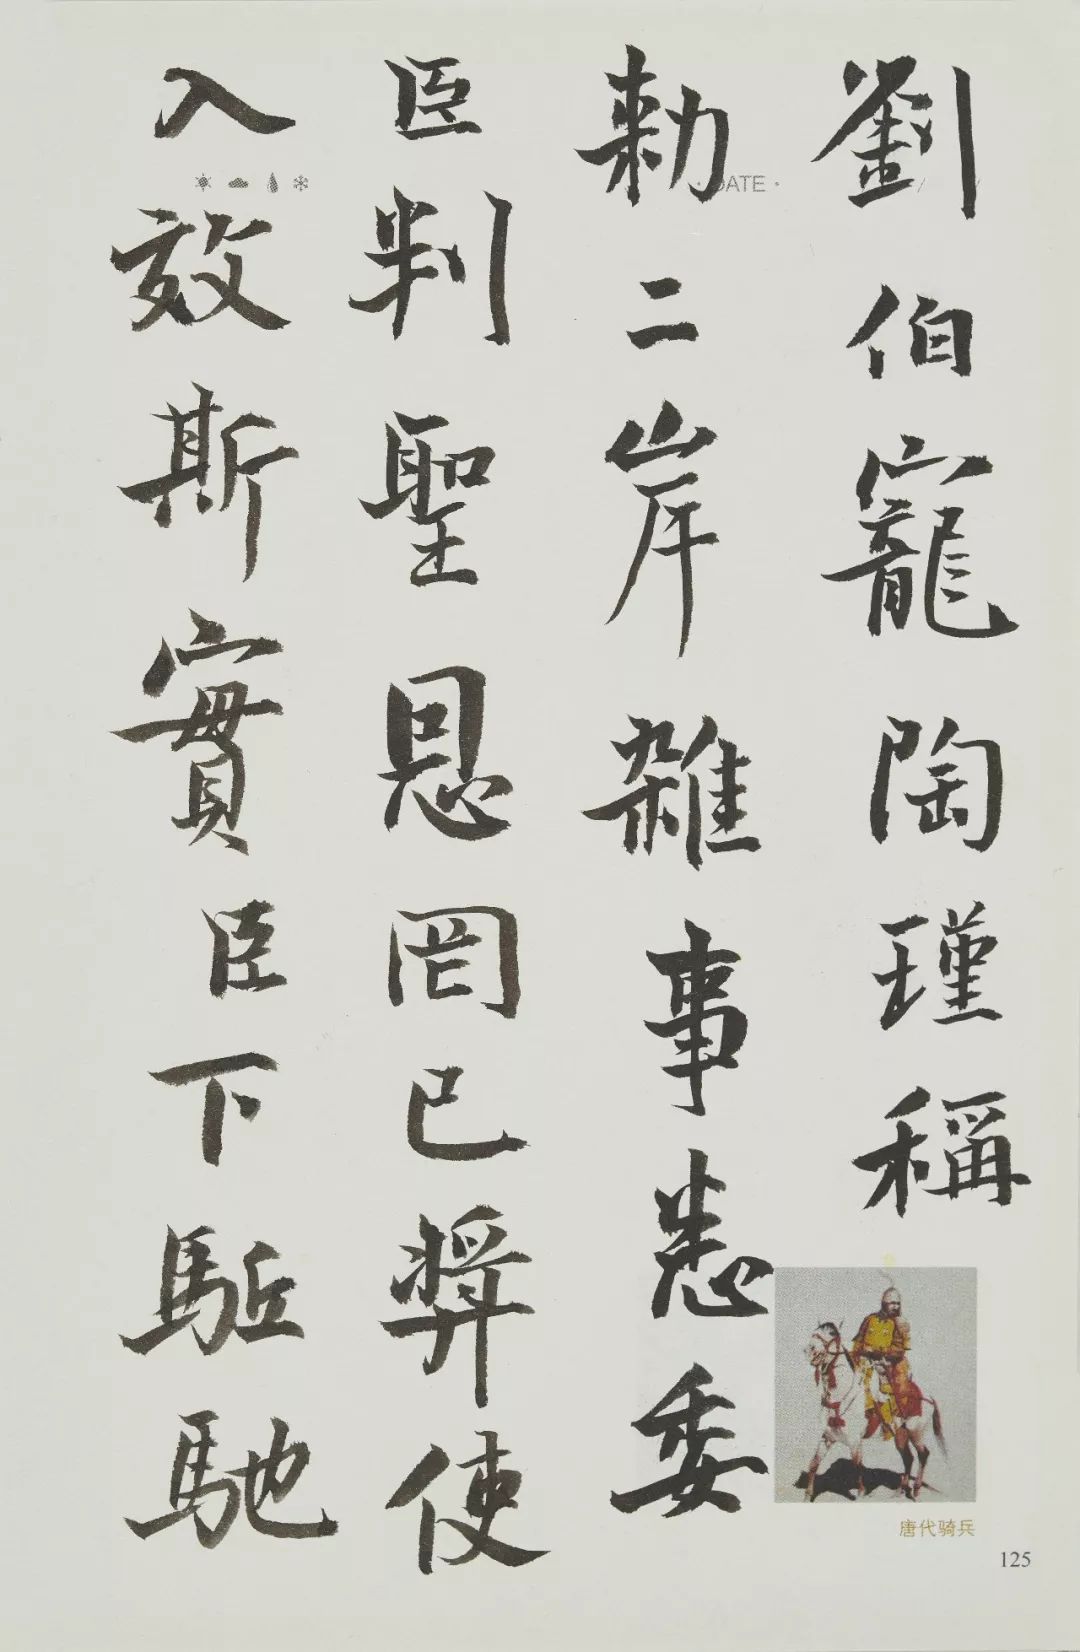 劉伯寵陶瑾稱
勑二岸雜事悉委
臣判聖恩罔已奨使
入效斯實臣下駈馳
DATE ·
唐代骑兵
125